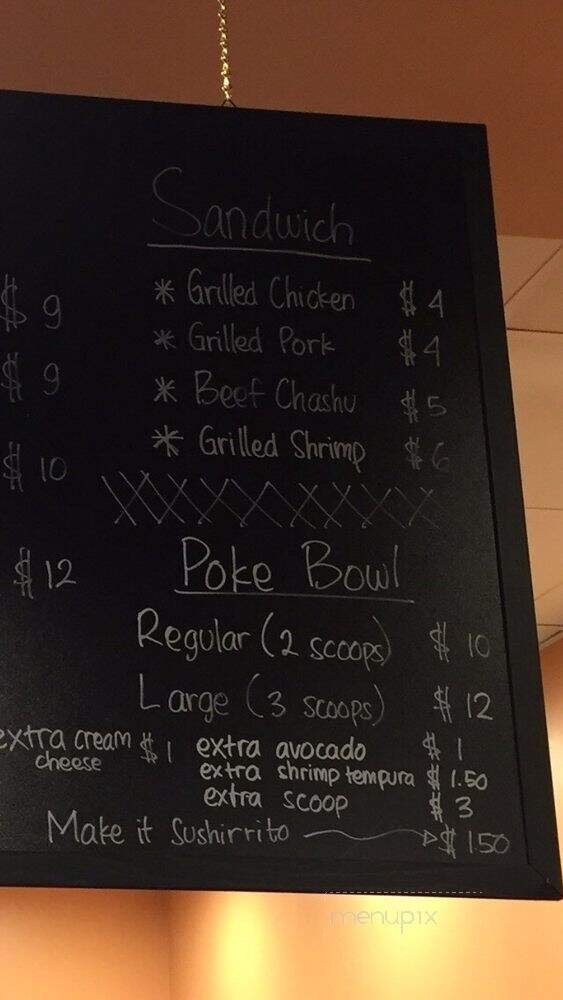 Sandwich
$ 9 * Grilled Chicken $ 4
* Grilled Pork $ 4
$ 9 * Beef Chashu $ 5
$ 10 * Grilled Shrimp $ 6
XXXXXXXX
$ 12 Poke Bowl
Regular (2 scoops) $ 10
Large (3 scoops) $ 12
extra cream cheese $ 1 extra avocado $ 1
extra shrimp tempura $ 1.50
extra scoop $ 3
Make it Sushirrito $ 150
menupix